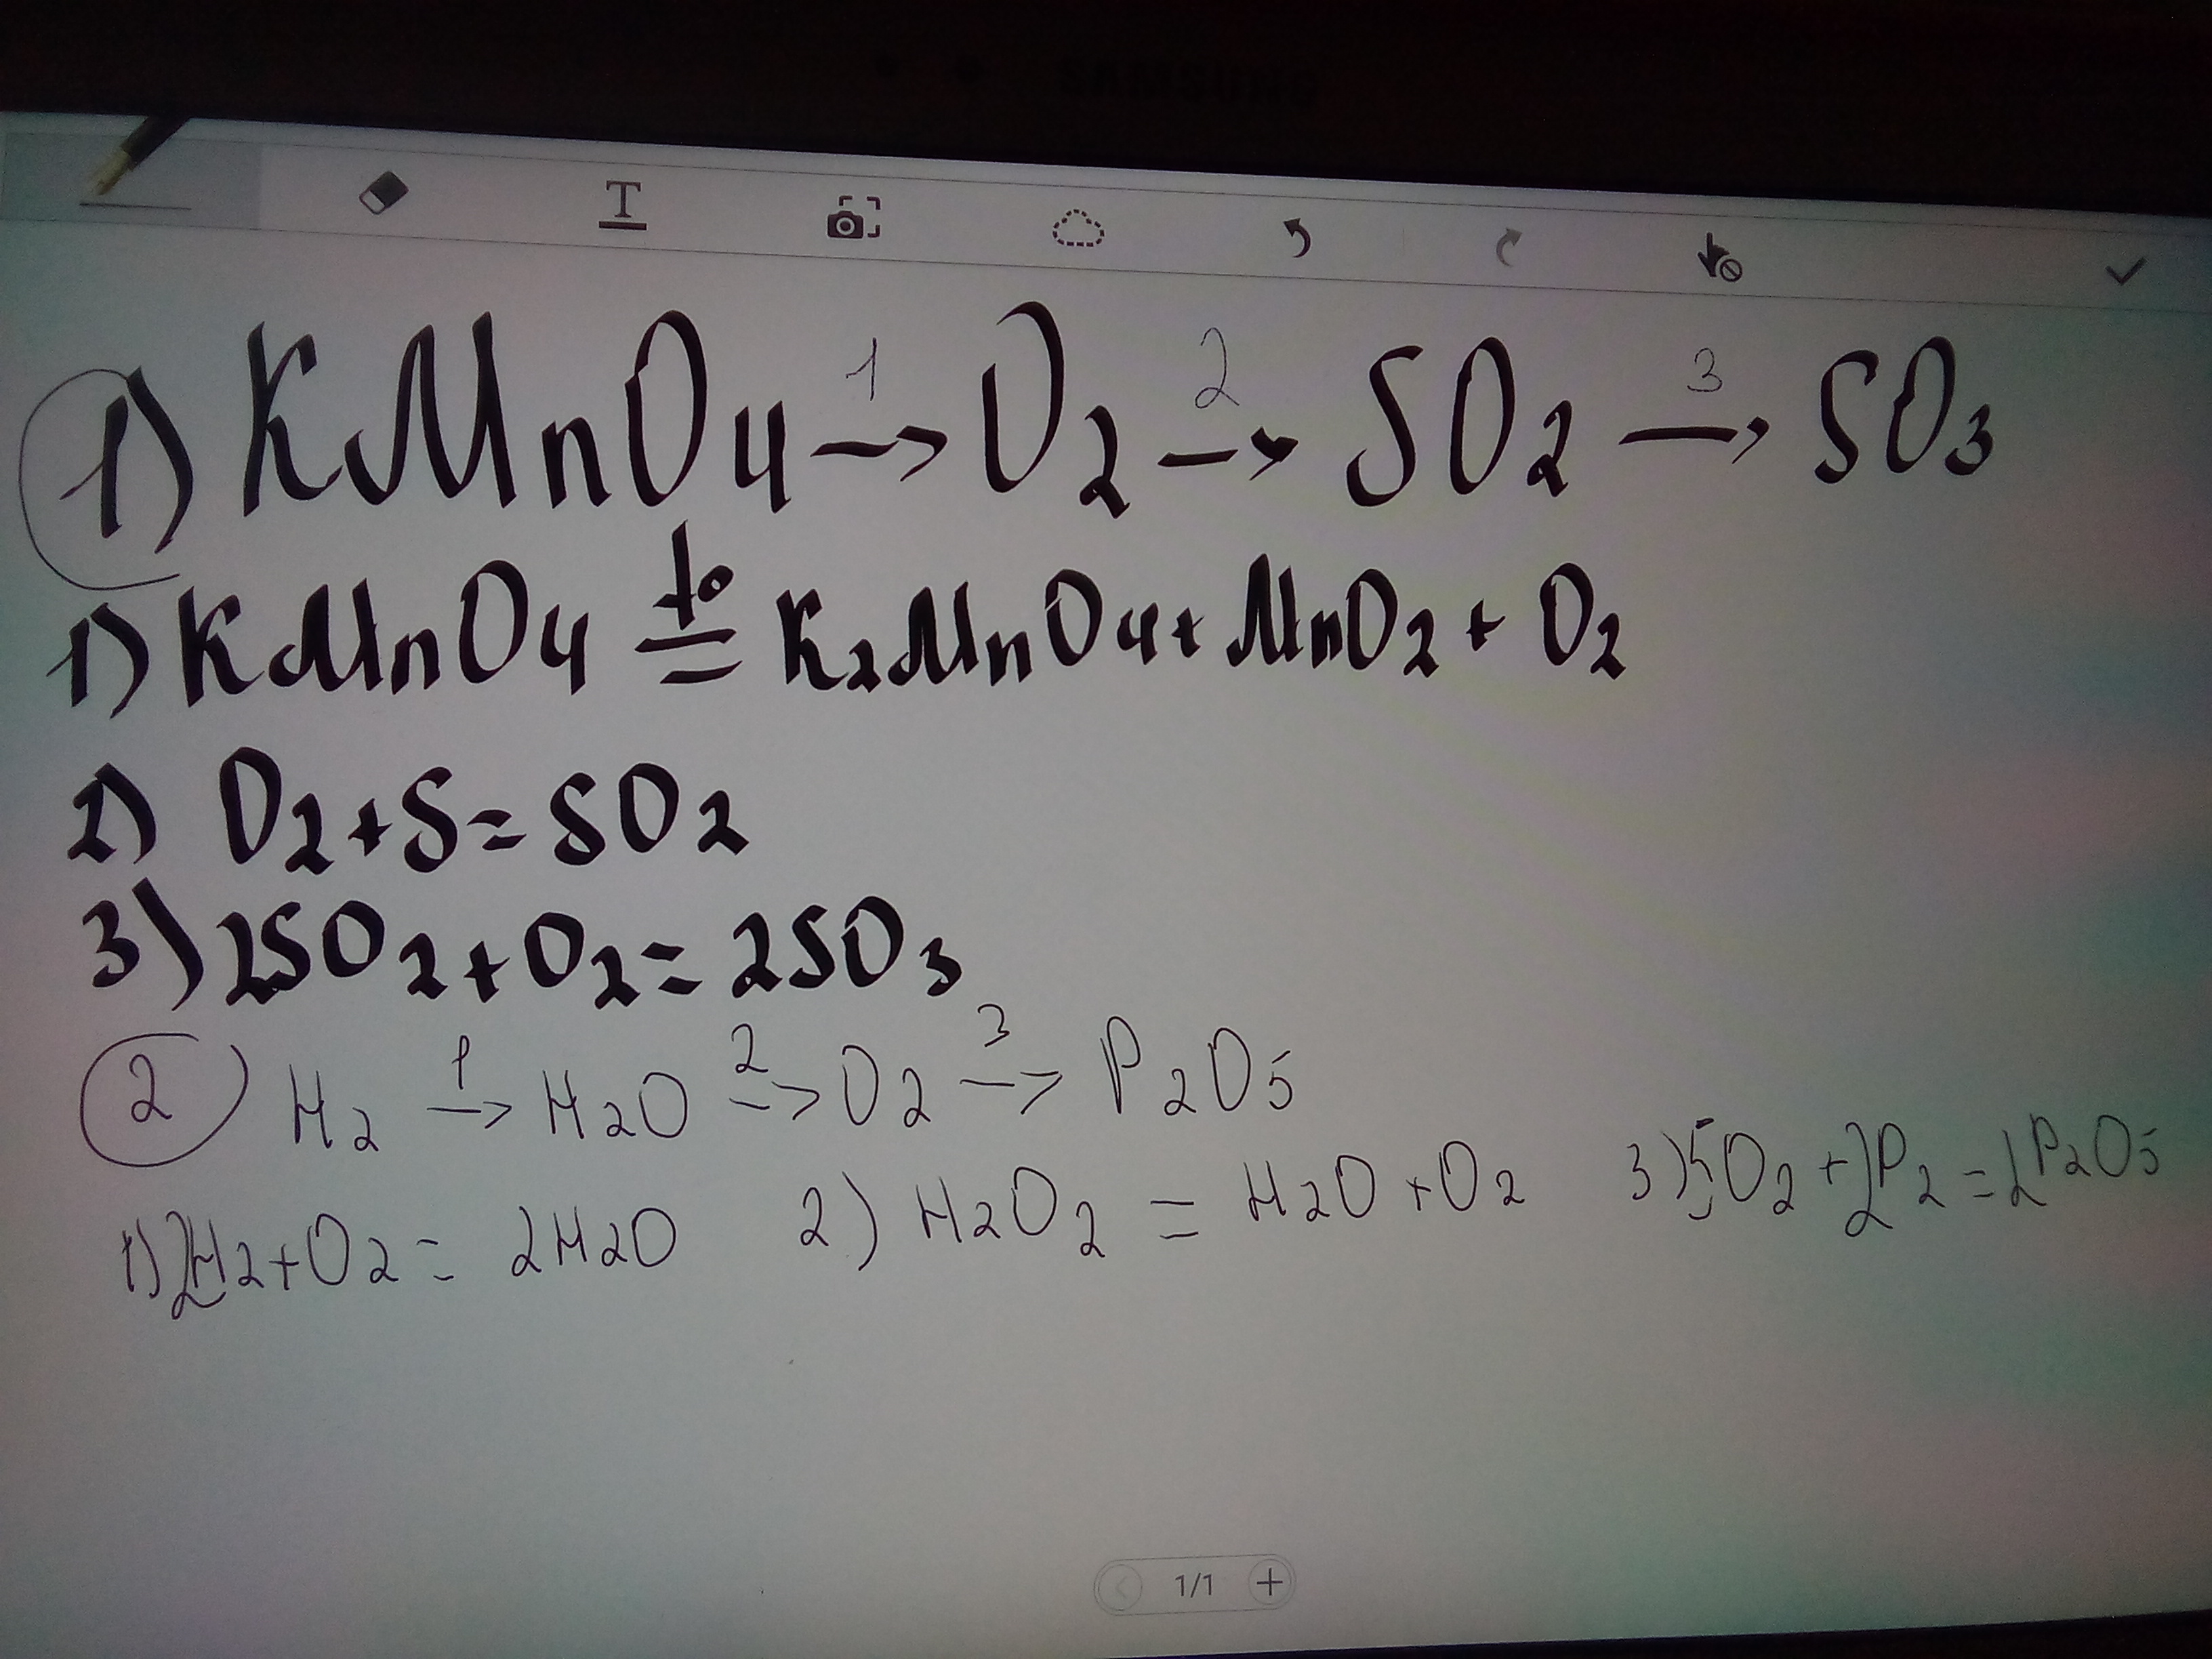 SAMSUNG
T
1) KMnO4 →1 O2 →2 SO2 →3 SO3
1) KMnO4 =t° K2MnO4 + MnO2 + O2
2) O2 + S = SO2
3) 2SO2 + O2 = 2SO3
2) H2 →1 H2O →2 O2 →3 P2O5
1) 2H2 + O2 = 2H2O 2) H2O2 = H2O + O2 3) 5O2 + 2P2 = 2P2O5
1/1 +